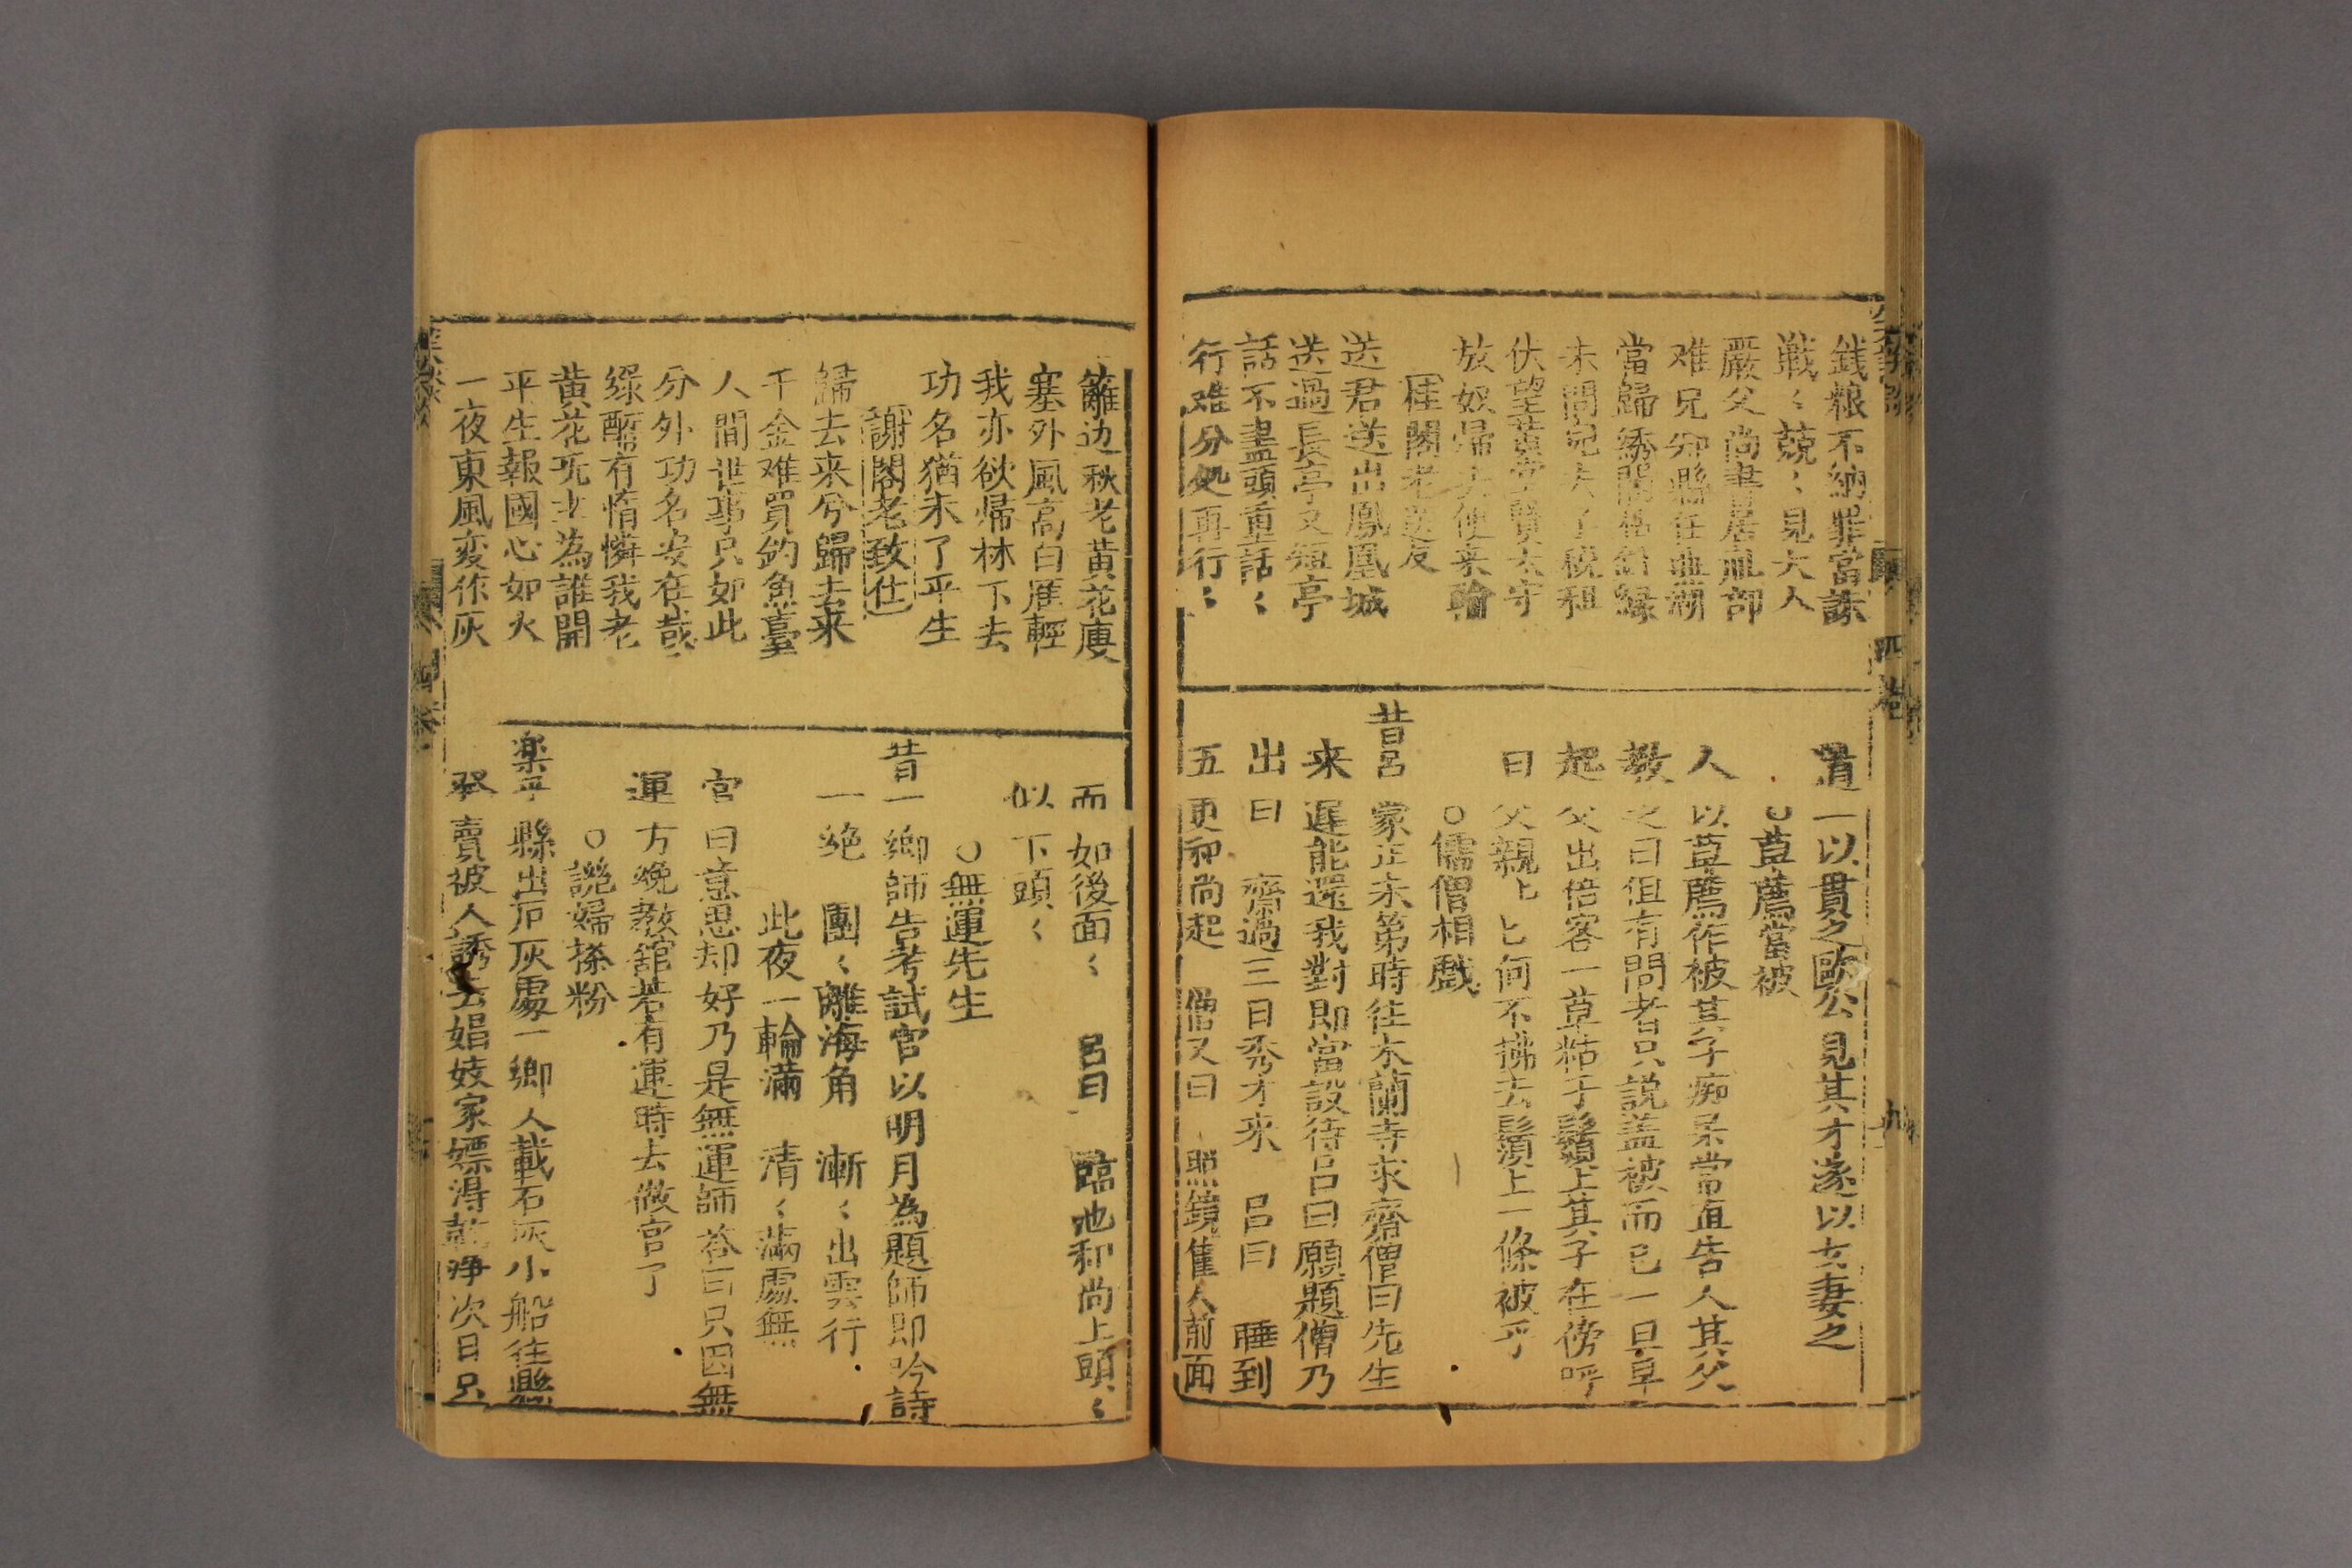 錢粮不納罪當誅
戰〻兢〻見大人
嚴父尚書居礼部
难兄知縣任
當歸綉閣
未問
伏望黄堂賢太守
放奴歸去便来輸
桂閣老送友
送君送出鳳凰城
送過長亭又短亭
話不盡頭重話〻
行难分処再行〻
道一以貫之歐公見其才遂以女妻之
○草薦當被
人以草薦作被其子痴呆常直告人其父
教之曰但有問者只説盖被而已一旦早
起父出陪客一草粘于鬚上其子在傍呼
曰父親匕匕何不拂去鬚上一條被乎
○儒僧相戲
昔吕蒙正未第時往木蘭寺求齋僧曰先生
来遲能還我對即當設待吕曰願題僧乃
出曰 齋過三日秀才来 吕曰 睡到
五更和尚起 僧又曰 照鏡佳人前面
籬边秋老黄花廋
塞外風高白雁輕
我亦欲帰林下去
功名猶未了平生
謝閣老致仕
歸去来兮歸去来
千金难買釣魚臺
人間世事只如此
分外功名安在哉
緑醅有情憐我老
黄花旡主為誰開
平生報國心如火
一夜東風变作灰
而如後面〻 吕曰 臨池和尚上頭〻
似下頭〻
○無運先生
昔一鄉師告考試官以明月為題師即吟詩
一絶 團〻離海角 漸〻出雲行
此夜一輪滿 清〻滿處無
官曰意思却好乃是無運師荅曰只因無
運方晚教舘若有運時去做官了
○譏婦搽粉
楽平縣出石灰處一鄉人載石灰小船往縣
發賣被人誘去娼妓家嫖得乾净次日只